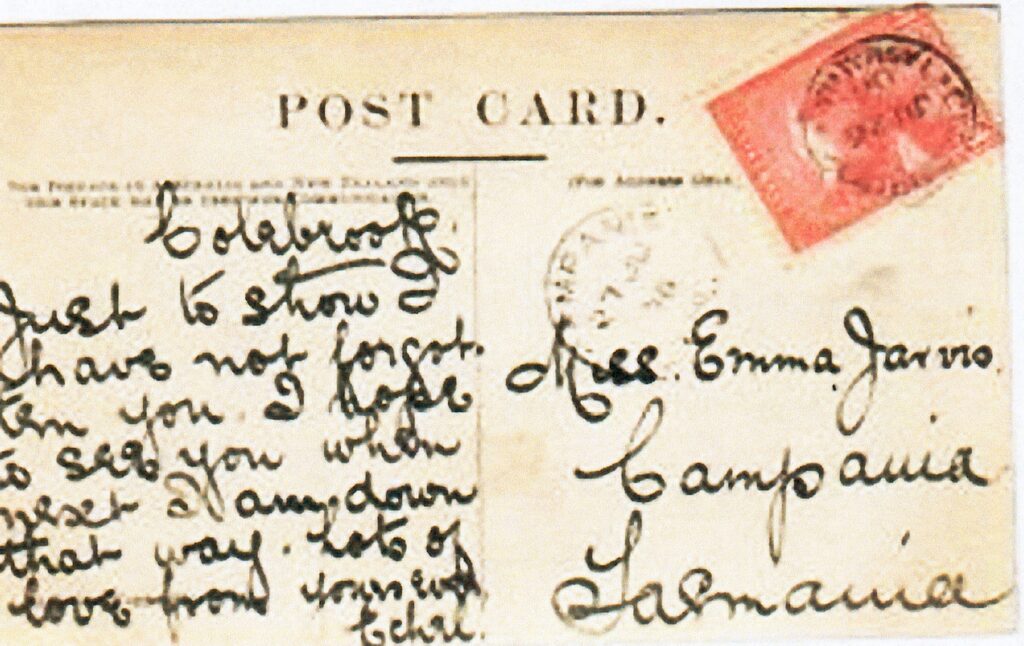 POST CARD.
(FOR ADDRESS ONLY)
Colebrook.
Just to show I
have not forgot.
ten you. I hope
to see you when
next I am down
that way. Lots of
love from yours ever
Miss. Emma Jarvis.
Campania
Tasmania